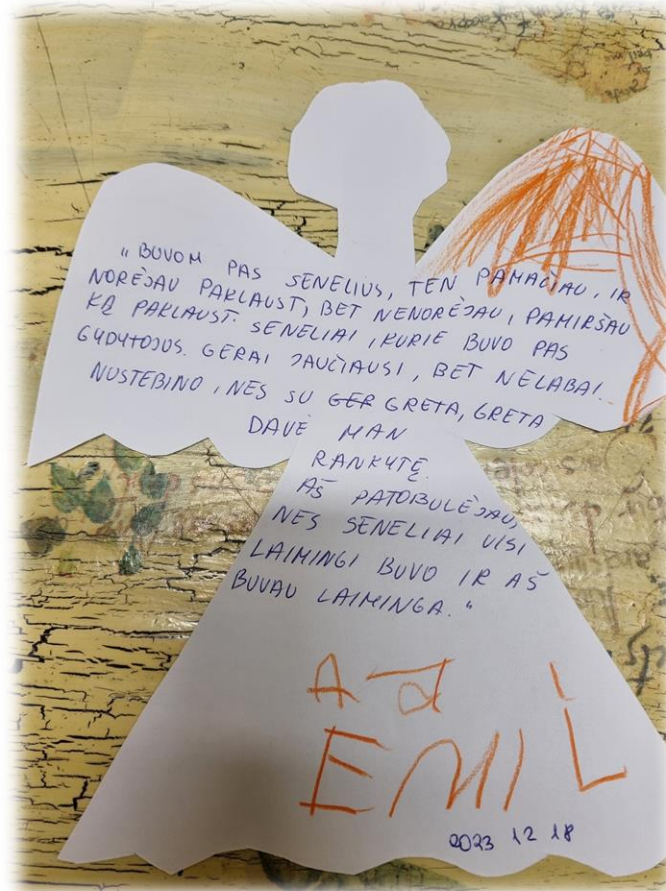 „BUVOM PAS SENELIUS, TEN PAMAČIAU, IR
NORĖJAU PAKLAUST, BET NENORĖJAU, PAMIRŠAU
KĄ PAKLAUST. SENELIAI, KURIE BUVO PAS
GYDYTOJUS. GERAI JAUČIAUSI, BET NELABAI.
NUSTEBINO, NES SU GER GRETA, GRETA
DAVĖ MAN
RANKUTĘ.
AŠ PATOBULĖJAU,
NES SENELIAI VISI
LAIMINGI BUVO IR AŠ
BUVAU LAIMINGA."
EMILI
2023 12 18